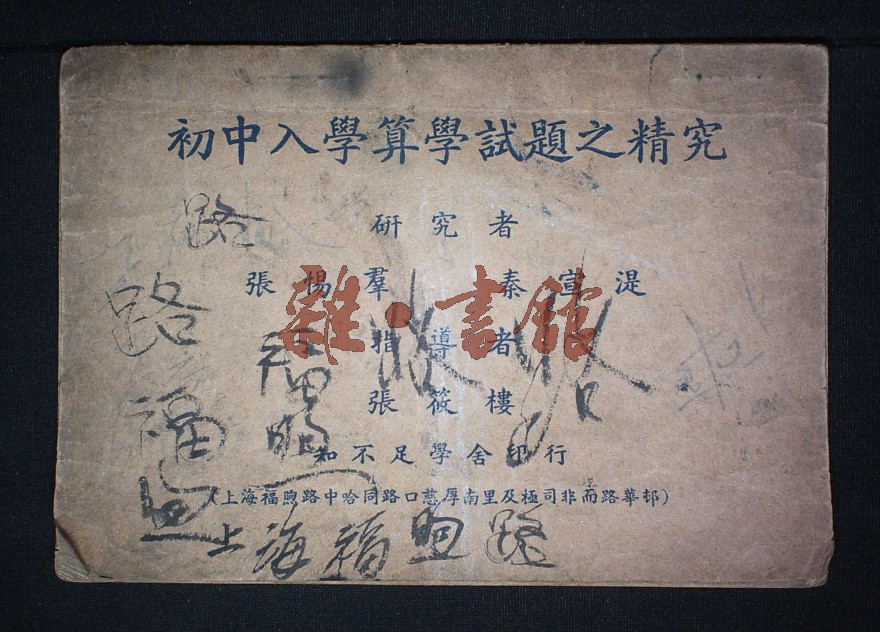 初中入學算學試題之精究
研究者
張惕羣 秦宣湜
雜·書館
指導者
張筱樓
知不足學舍印行
(上海福煦路中哈同路口慈厚南里及極司非而路華邨)
路
路
福
福煦
上海福煦路